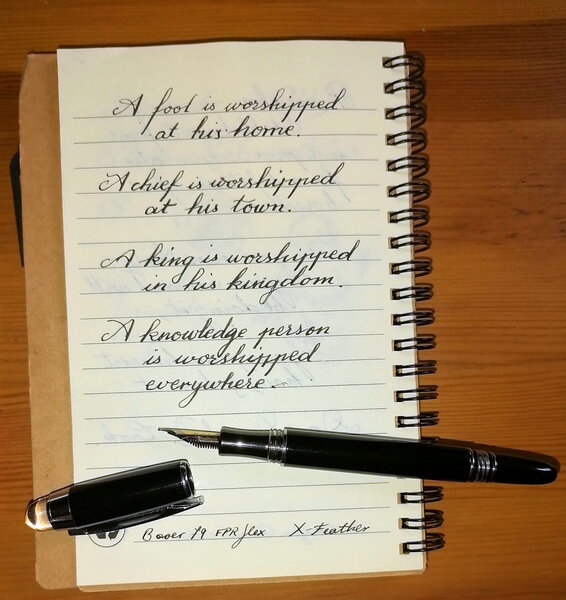 A fool is worshipped
at his home.
A chief is worshipped
at his town.
A king is worshipped
in his kingdom.
A knowledge person
is worshipped
everywhere.
19 FPR flex X-Feather